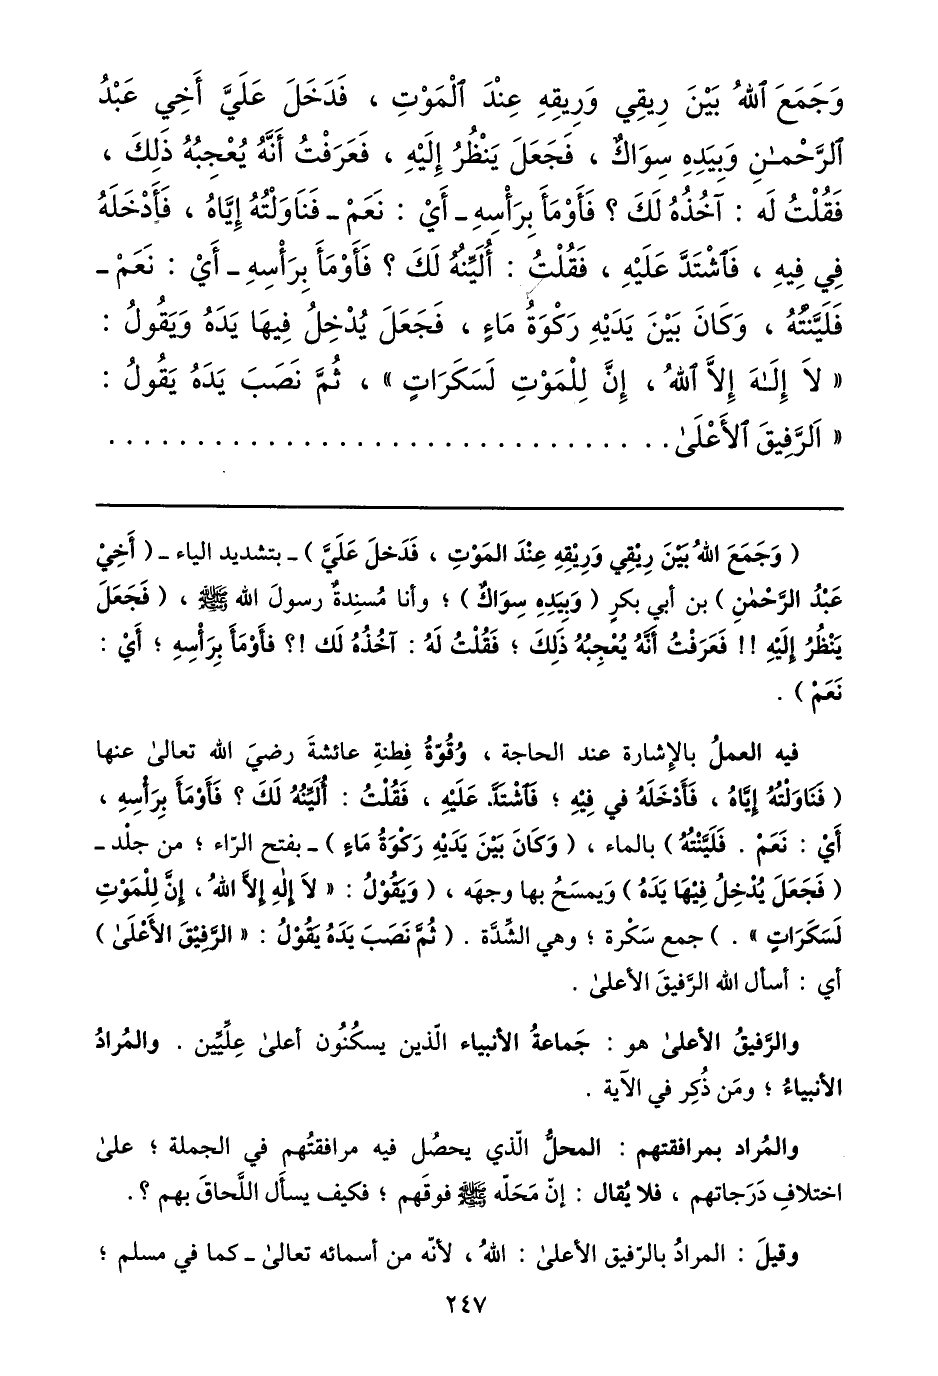 وَجَمَعَ ٱللهُ بَيْنَ رِيقِي وَرِيقِهِ عِنْدَ ٱلْمَوْتِ ، فَدَخَلَ عَلَيَّ أَخِي عَبْدُ
ٱلرَّحْمـٰنِ وَبِيَدِهِ سِوَاكٌ ، فَجَعَلَ يَنْظُرُ إِلَيْهِ ، فَعَرَفْتُ أَنَّهُ يُعْجِبُهُ ذَلِكَ ،
فَقُلْتُ لَه : آخُذُهُ لَكَ ؟ فَأَوْمَأَ بِرَأْسِهِ ـ أَيْ : نَعَمْ ـ فَنَاوَلْتُهُ إِيَّاهُ ، فَأَدْخَلَهُ
فِي فِيهِ ، فَٱشْتَدَّ عَلَيْهِ ، فَقُلْتُ : أُلَيِّنُهُ لَكَ ؟ فَأَوْمَأَ بِرَأْسِهِ ـ أَيْ : نَعَمْ ـ
فَلَيَّنْتُهُ ، وَكَانَ بَيْنَ يَدَيْهِ رَكْوَةُ مَاءٍ ، فَجَعَلَ يُدْخِلُ فِيهَا يَدَهُ وَيَقُولُ :
« لاَ إِلَـٰهَ إِلاَّ ٱللهُ ، إِنَّ لِلْمَوْتِ لَسَكَرَاتٍ » ، ثُمَّ نَصَبَ يَدَهُ يَقُولُ :
« اَلرَّفِيقَ ٱلأَعْلَىٰ . . . . . . . . . . . . . . . . . . . . . . . . . . . . . . . . .
( وَجَمَعَ اللهُ بَيْنَ رِيْقِي وَرِيْقِهِ عِنْدَ المَوْتِ ، فَدَخَلَ عَلَيَّ ) ـ بتشديد الياء ـ ( أَخِيْ
عَبْدُ الرَّحْمٰنِ ) بن أبي بكرٍ ( وَبِيَدِهِ سِوَاكٌ ) ؛ وأنا مُسنِدةٌ رسولَ الله ﷺ ، ( فَجَعَلَ
يَنْظُرُ إِلَيْهِ !! فَعَرَفْتُ أَنَّهُ يُعْجِبُهُ ذَلِكَ ؛ فَقُلْتُ لَهُ : آخُذُهُ لَك !؟ فأوْمَأَ بِرَأْسِهِ ؛ أَيْ :
نَعَمْ ) .
فيه العملُ بالإشارة عند الحاجة ، وقُوّةُ فِطنةِ عائشةَ رضيَ الله تعالىٰ عنها
( فَنَاوَلْتُهُ إِيَّاهُ ، فَأَدْخَلَهُ في فِيْهِ ؛ فَٱشْتَدَّ عَلَيْهِ ، فَقُلْتُ : أُلَيِّنُهُ لَكَ ؟ فَأَوْمَأَ بِرَأْسِهِ ،
أَيْ : نَعَمْ . فَلَيَّنْتُهُ ) بالماء ، ( وَكَانَ بَيْنَ يَدَيْهِ رَكْوَةُ مَاءٍ ) ـ بفتح الرّاء ؛ من جلْد ـ
( فَجَعَلَ يُدْخِلُ فِيْهَا يَدَهُ ) وَيمسَحُ بها وجهَه ، ( وَيَقُوْلُ : « لاَ إِلٰهَ إِلاَّ اللهُ ، إِنَّ لِلْمَوْتِ
لَسَكَرَاتٍ » . ) جمع سَكْرة ؛ وهي الشِّدَّة . ( ثُمَّ نَصَبَ يَدَهُ يَقُوْلُ : « الرَّفِيْقَ الأَعْلَىٰ )
أي : أسأل الله الرَّفيقَ الأعلىٰ .
والرَّفيقُ الأعلىٰ هو : جَماعةُ الأنبياء الّذين يسكُنُون أعلىٰ عِلِّيِّين . والمُرادُ
الأنبياءُ ؛ ومَن ذُكِر في الآية .
والمُراد بمرافقتهم : المحلُّ الّذي يحصُل فيه مرافقتُهم في الجملة ؛ علىٰ
اختلافِ دَرَجاتهم ، فلا يُقال : إنّ مَحَلّه ﷺ فوقَهم ؛ فكيف يسأَل اللَّحاقَ بهم ؟ .
وقيلَ : المرادُ بالرّفيق الأعلىٰ : اللهُ ، لأنّه من أسمائه تعالىٰ ـ كما في مسلم ؛
٢٤٧